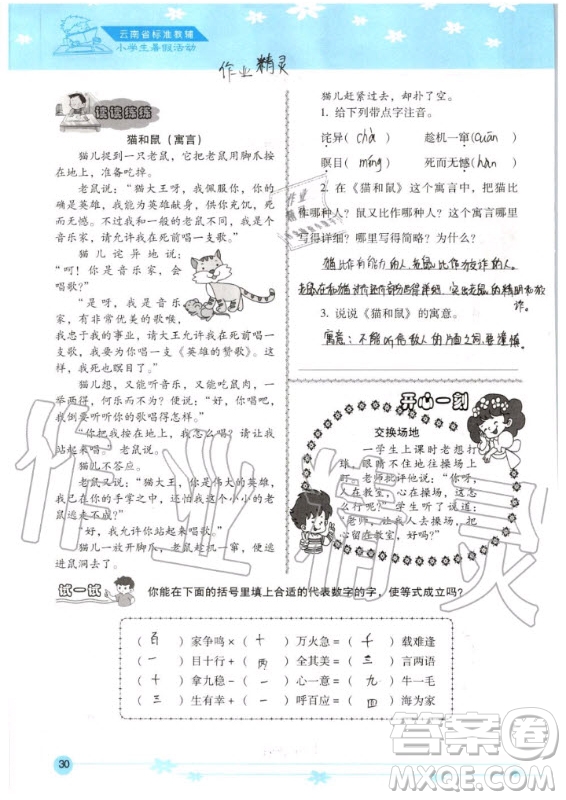 云南省标准教辅
小学生暑假活动
作业精灵
读读练练
猫和鼠（寓言）
猫儿捉到一只老鼠。它把老鼠用脚爪按
在地上，准备吃掉。
老鼠说：“猫大王呀，我佩服你的勇敢、
英雄，我能为英雄献身，感到万分荣幸，死
而无憾！不过我的老鼠不同，我是个音
乐家，请允许我在死前唱一支歌。”
猫儿诧异地说：
“呵！你是音乐家，会
唱歌？”
“是呀，我是音乐
家，有非常优美的歌喉，
我忠于我的事业，请大王允许我在死前唱一
支歌。我要唱一支《英雄的赞歌》。这支歌
唱起来，我死也瞑目了。”
猫儿想，又能听音乐，又能吃鼠肉，一
举两得，何乐而不为？便说：“我饶恕你，
我倒要听听你的歌唱得怎样！”
“你把我按在地上，我怎么唱？请让我
站起来唱。”老鼠说。
猫儿不答应。
老鼠又说：“猫大王，老鼠在你面前是
多么小，你站在我面前，还怕我这个小小的老
鼠逃走不成？”
“好，我允许你站起来唱歌！”
猫儿一放开脚爪，老鼠趁机一窜，便逃
进鼠洞去了。
猫儿赶紧过去，却一只扑了个空。
1. 给下列带点字注音。
诧异（chà）　趁机一窜（cuān）
瞑目（míng）　死而无憾（hàn）
2. 在《猫和鼠》这个寓言中，把猫比
作哪种人？鼠又比作哪种人？哪里
写得详细？哪里写得简略？为什么？
猫比作有能力的人，老鼠比作狡诈的人。
老鼠在和猫对话部分写得详细，突出老鼠的精明和狡
诈。
3. 说说《猫和鼠》的寓意。
寓意：不能听信敌人的片面之词，要谨慎。
开心一刻
交换场地
一学生上课时老想打
球，眼睛不住往操场上
看。老师批评他说：“你呀，
人在教室，心在操场，这
怎么行呢？”学生听了说道：
“老师，让我人在操场，把
心留在教室，好吗？”
试一试
你能在下面的括号里填上合适的代表数字的字，使等式成立吗？
（百）家争鸣×（十）万火急=（千）载难逢
（一）目十行+（两）全其美=（三）言两语
（十）拿九稳-（一）心一意=（九）牛一毛
（三）生有幸+（一）呼百应=（四）海为家
30
作业精灵
答案圈